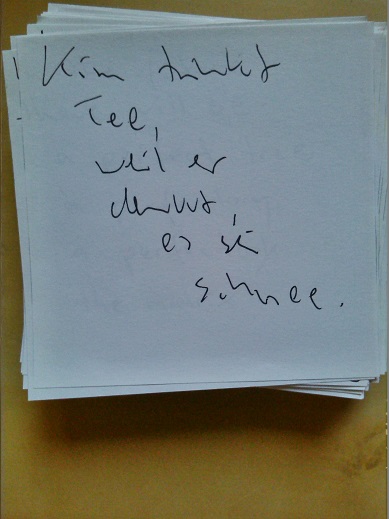 Kim trinkt
Tee,
weil er
denkt,
es sei
Schnee.